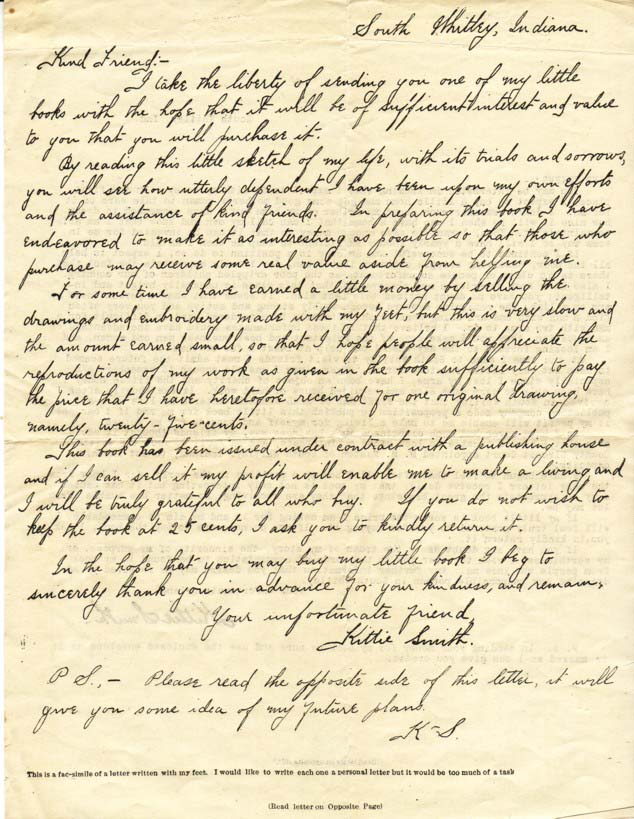 South Whitley, Indiana.
Kind Friend:-
I take the liberty of sending you one of my little
books with the hope that it will be of sufficient interest and value
to you that you will purchase it.
By reading this little sketch of my life, with its trials and sorrows,
you will see how utterly dependent I have been upon my own efforts
and the assistance of kind friends. In preparing this book I have
endeavored to make it as interesting as possible so that those who
purchase may receive some real value aside from helping me.
For some time I have earned a little money by selling the
drawings and embroidery made with my feet, but this is very slow and
the amount earned small, so that I hope people will appreciate the
reproductions of my work as given in the book sufficiently to pay
the price that I have heretofore received for one original drawing,
namely, twenty-five-cents.
This book has been issued under contract with a publishing house
and if I can sell it my profit will enable me to make a living and
I will be truly grateful to all who buy. If you do not wish to
keep the book at 25 cents, I ask you to kindly return it.
In the hope that you may buy my little book I beg to
sincerely thank you in advance for your kindness, and remain,
Your unfortunate friend,
Kittie Smith.
P S., - Please read the opposite side of this letter, it will
give you some idea of my future plans.
K-S.
This is a fac-simile of a letter written with my feet. I would like to write each one a personal letter but it would be too much of a task
(Read letter on Opposite Page)